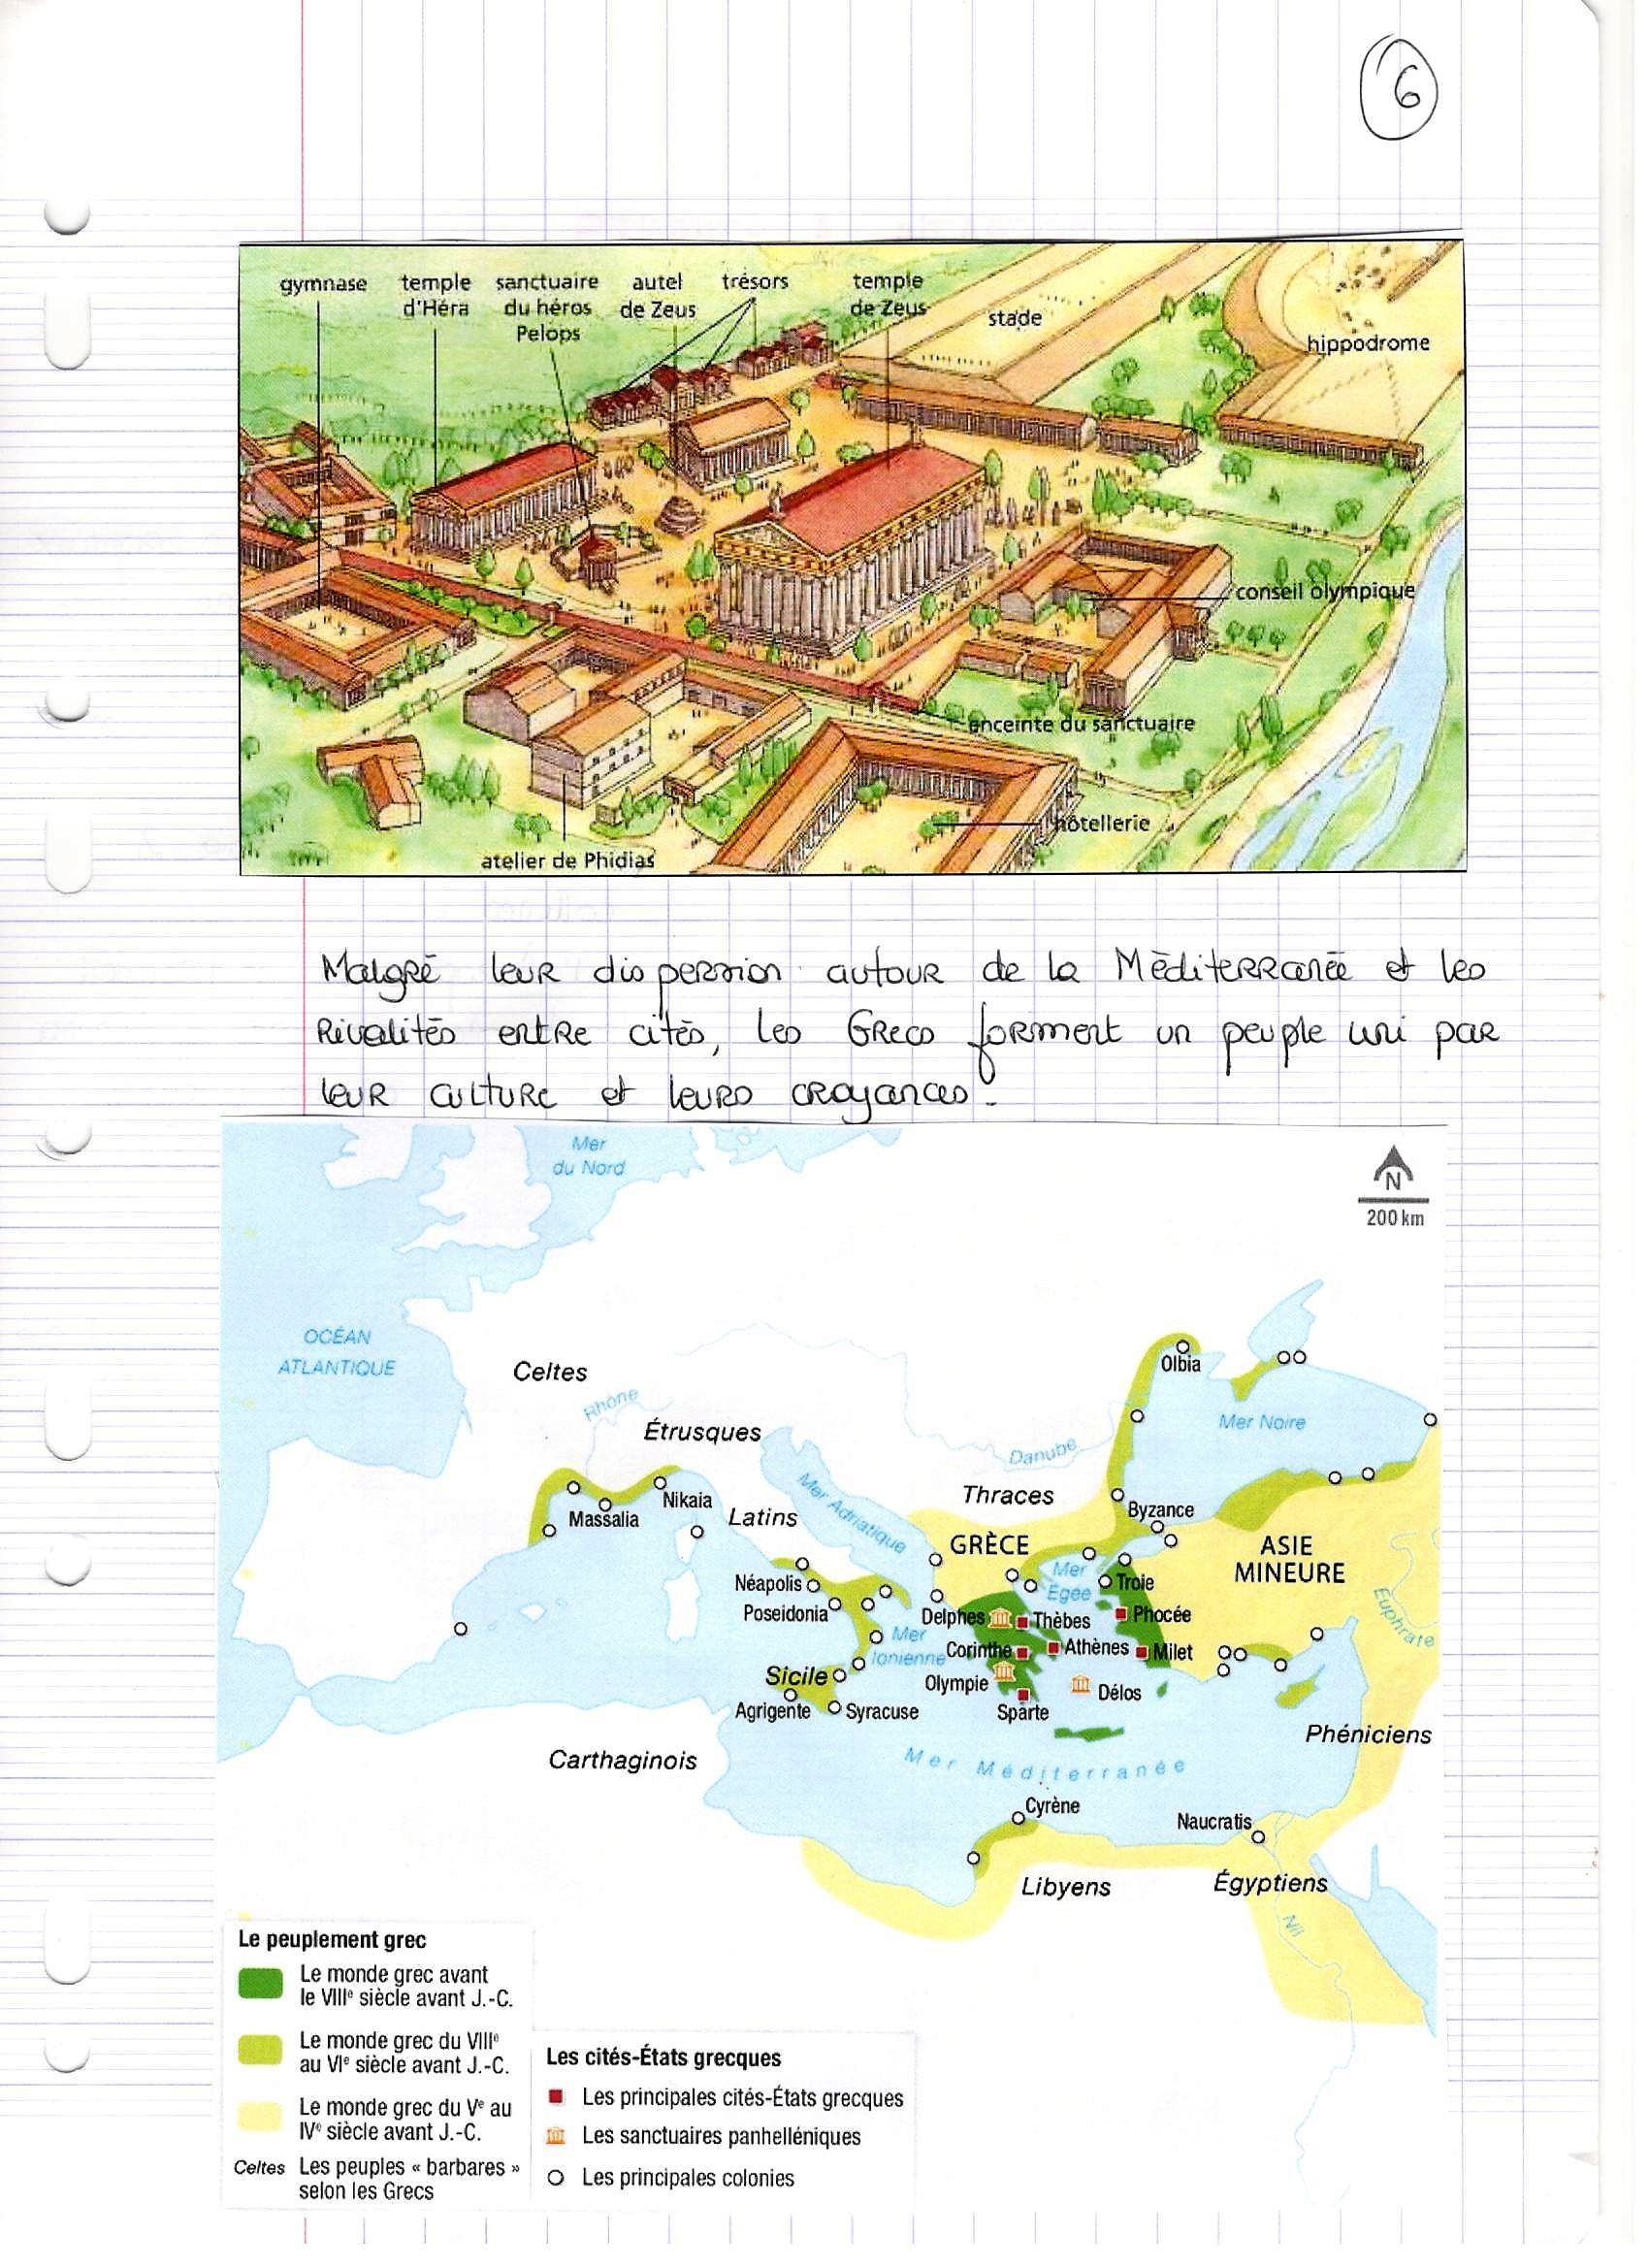 6
gymnase
temple
d'Héra
sanctuaire
du héros
Pelops
autel
de Zeus
trésors
temple
de Zeus
stade
hippodrome
conseil olympique
enceinte du sanctuaire
hôtellerie
atelier de Phidias
Malgré leur dispersion autour de la Méditerranée et les
Rivalités entre cités, les Grecs forment un peuple uni par
leur culture et leurs croyances.
Mer
du Nord
N
200 km
OCÉAN
ATLANTIQUE
Celtes
Rhône
Étrusques
Olbia
Mer Noire
Danube
Mer Adriatique
Thraces
Nikaia
Massalia
Latins
Byzance
GRÈCE
ASIE
MINEURE
Mer
Égée
Troie
Néapolis
Poseidonia
Delphes
Thèbes
Phocée
Euphrate
Mer
Ionienne
Corinthe
Athènes
Milet
Sicile
Olympie
Délos
Agrigente
Syracuse
Sparte
Phéniciens
Carthaginois
Mer Méditerranée
Cyrène
Naucratis
Libyens
Égyptiens
Nil
Le peuplement grec
Le monde grec avant
le VIIIe siècle avant J.-C.
Le monde grec du VIIIe
au VIe siècle avant J.-C.
Le monde grec du Ve au
IVe siècle avant J.-C.
Celtes Les peuples « barbares »
selon les Grecs
Les cités-États grecques
Les principales cités-États grecques
Les sanctuaires panhelléniques
Les principales colonies